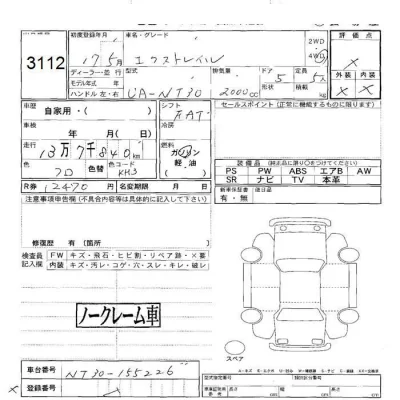 3112
初度登録年月
17 5月
車名・グレード
エクストレイル
2WD
4WD
評価点
×
ディーラー・並行
モデル年式 年
ハンドル 左・右
型式
UA-NT30
排気量
2000cc
ドア
5
形状
定員
5人
積載
kg
外装
内装
×
×
車歴
自家用・( )
シフト
FAT
セールスポイント (正常に機能するものに限ります)
車検
年 月 日
冷房
走行
13万7千840km
燃料
ガソリン
軽・油
色
クロ
色替
カラーNo.
KH3
装備品 (純正品に限り○をつけてください)
PS PW ABS エアB AW
SR ナビ TV 本革
R券
12470
名変期限 年 月 日
新車保証書
有・無
注意事項申告欄 (不具合内容等は具体的に記入して下さい)
修復歴 有 (箇所
検査員
記入欄
FW キズ・飛石・ヒビ割・リペア跡・×要
内装 キズ・汚レ・コゲ・穴・スレ・キレ・破レ
ノークレーム車
スペア
車台番号
NT30-155226
登録番号